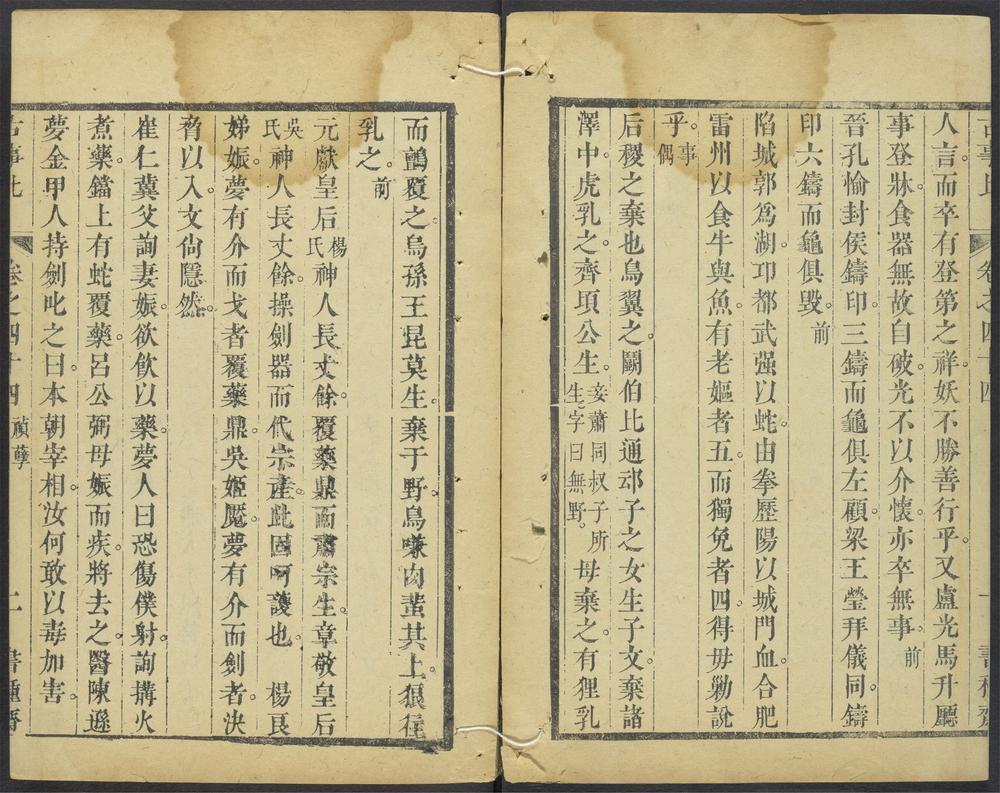 古事比
卷之四十四
一
書種齋
人言而卒有登第之祥妖不勝善行乎又盧光馬升廳
事登牀食器無故自破光不以介懷亦卒無事前
晉孔愉封侯鑄印三鑄而龜俱左顧梁王瑩拜儀同鑄
印六鑄而龜俱毀前
陷城郭爲湖邛都武强以蛇由拳歷陽以城門血合肥
雷州以食牛與魚有老嫗者五而獨免者四得毋勦說
乎事偶
后稷之棄也鳥翼之鬬伯比通䢵子之女生子文棄諸
澤中虎乳之齊頃公生妾蕭同叔子所生字曰無野母棄之有狸乳
而鸇覆之烏孫王昆莫生棄于野鳥嗛肉蜚其上狼徃
乳之前
元獻皇后楊氏神人長丈餘覆藥鼎而肅宗生章敬皇后
吳氏神人長丈餘操劍器而代宗產此因呵護也楊艮
娣娠夢有介而戈者覆藥鼎吳姬魘夢有介而劍者決
脅以入文尙隱然
崔仁冀父詢妻娠欲飲以藥夢人曰恐傷僕射詢搆火
煮藥鐺上有蛇覆藥呂公弼母娠而疾將去之醫陳遜
夢金甲人持劍叱之曰本朝宰相汝何敢以毒加害
古事比
卷之四十四
禎孽
二
書種齋